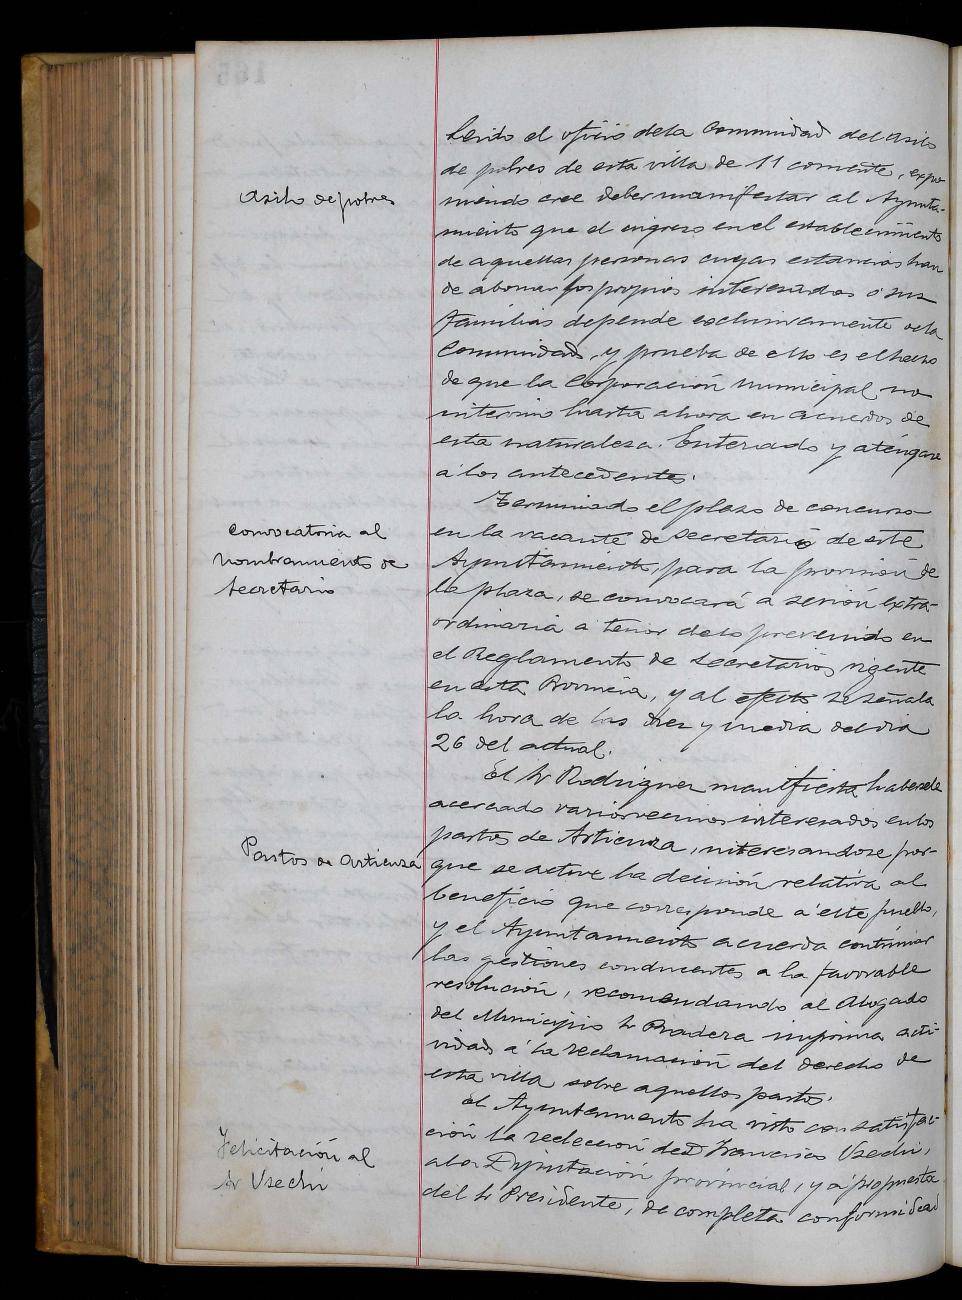 Asilo de pobres
Leido el oficio dela Comunidad del asilo
de pobres de esta villa de 11 corriente, expo-
niendo cree deber manifestar al Ayunta-
miento que el ingreso en el establecimiento
de aquellas personas cuyas estancias han
de abonar los propios interesados ó sus
familias depende exclusivamente dela
Comunidad, y prueba de ello es el hecho
de que la Corporación municipal no
intervino hasta ahora en acuerdos de
esta naturaleza. Enterado y aténgase
á los antecedentes.
Convocatoria al
nombramiento de
Secretario
Terminado el plazo de concurso
en la vacante de Secretario de este
Ayuntamiento, para la provisión de
la plaza, se convocará a sesión extra-
ordinaria a tenor delo prevenido en
el Reglamento de Secretarios vigente
en esta Provincia, y al efecto se señala
la hora de las diez y media del dia
26 del actual.
Pastos de Artienza
El Sr Rodriguez manifiesta habersele
acercado varios vecinos interesados en los
pastos de Artienza, interesandose por-
que se active la decisión relativa al
beneficio que corresponde a este pueblo,
y el Ayuntamiento acuerda continuar
las gestiones conducentes a la favorable
resolución, recomendando al Abogado
del Municipio Sr Pradera imprima acti-
vidad á la reclamación del derecho de
esta villa sobre aquellos pastos.
Felicitación al
Sr Usechi
El Ayuntamiento ha visto con satisfac-
ción la reelección de D Francisco Usechi,
a la Diputación provincial, y a propuesta
del Sr Presidente, de completa conformidad